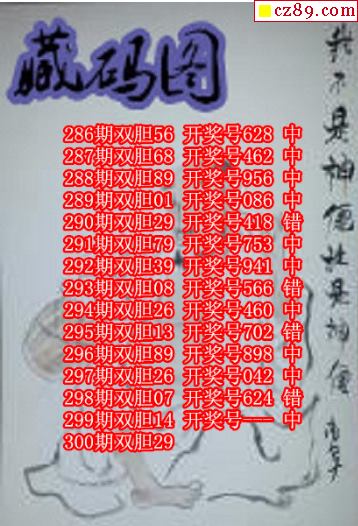 cz89.com
藏码图
286期双胆56 开奖号628 中
287期双胆68 开奖号462 中
288期双胆89 开奖号956 中
289期双胆01 开奖号086 中
290期双胆29 开奖号418 错
291期双胆79 开奖号753 中
292期双胆39 开奖号941 中
293期双胆08 开奖号566 错
294期双胆26 开奖号460 中
295期双胆13 开奖号702 错
296期双胆89 开奖号898 中
297期双胆26 开奖号042 中
298期双胆07 开奖号624 错
299期双胆14 开奖号--- 中
300期双胆29
我不是神但
是